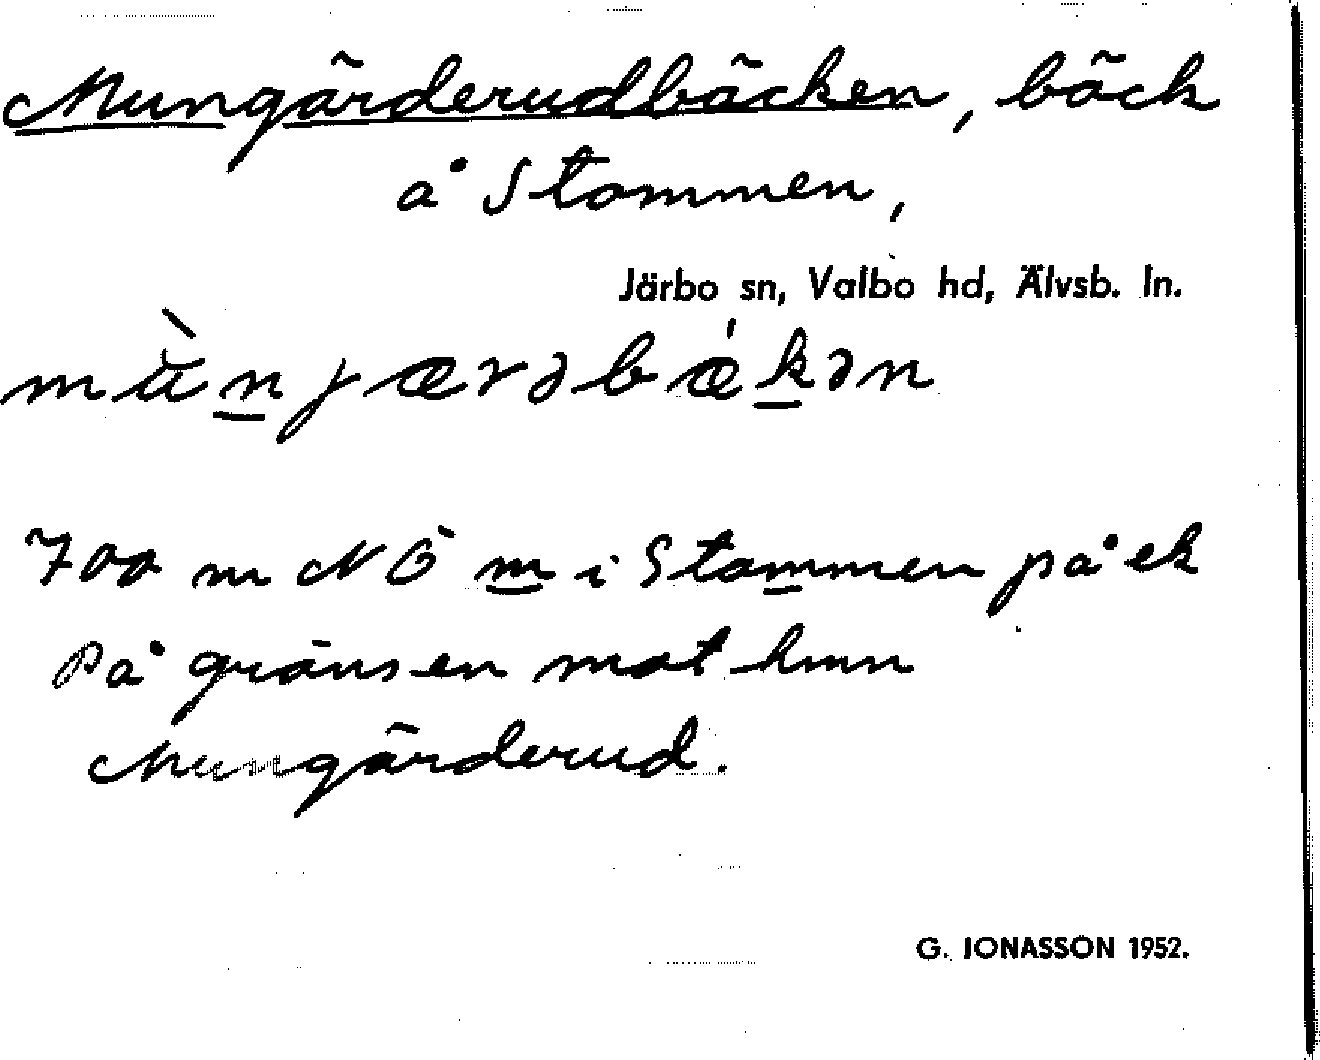 Mungärderudbäcken, bäck
å Stommen,
Järbo sn, Valbo hd, Älvsb. ln.
mùn̲jærəbǽk̲ən
700 m NÖ m̲ i Stom̲men på ek
på gränsen mot hmn
Mungärderud.
G. JONASSON 1952.